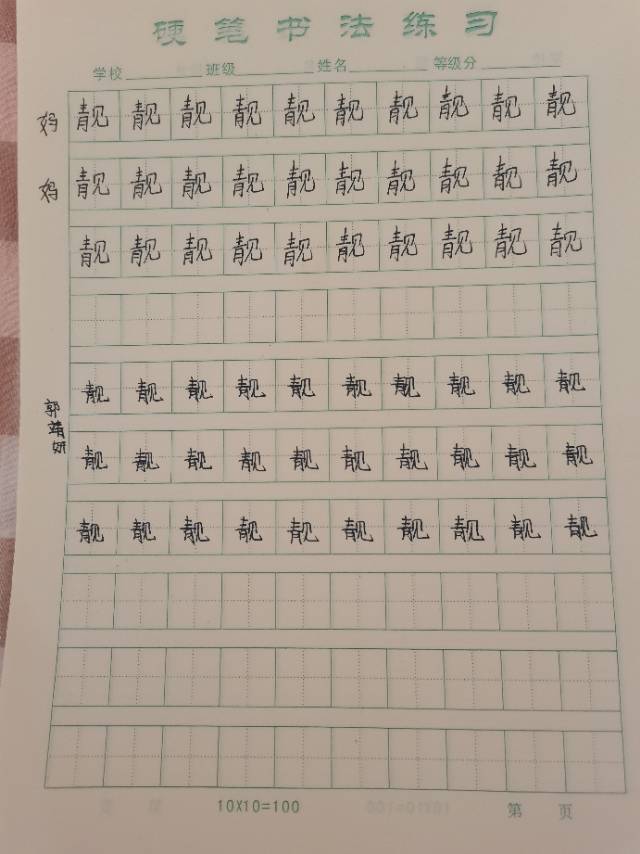 硬笔书法练习
学校 班级 姓名 等级分
妈 靓 靓 靓 靓 靓 靓 靓 靓 靓 靓
妈 靓 靓 靓 靓 靓 靓 靓 靓 靓 靓
靓 靓 靓 靓 靓 靓 靓 靓 靓 靓
郭靖妍 靓 靓 靓 靓 靓 靓 靓 靓 靓 靓
靓 靓 靓 靓 靓 靓 靓 靓 靓 靓
靓 靓 靓 靓 靓 靓 靓 靓 靓 靓
10X10=100 第 页